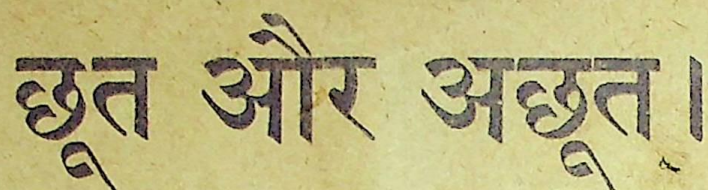 छूत और अछूत।